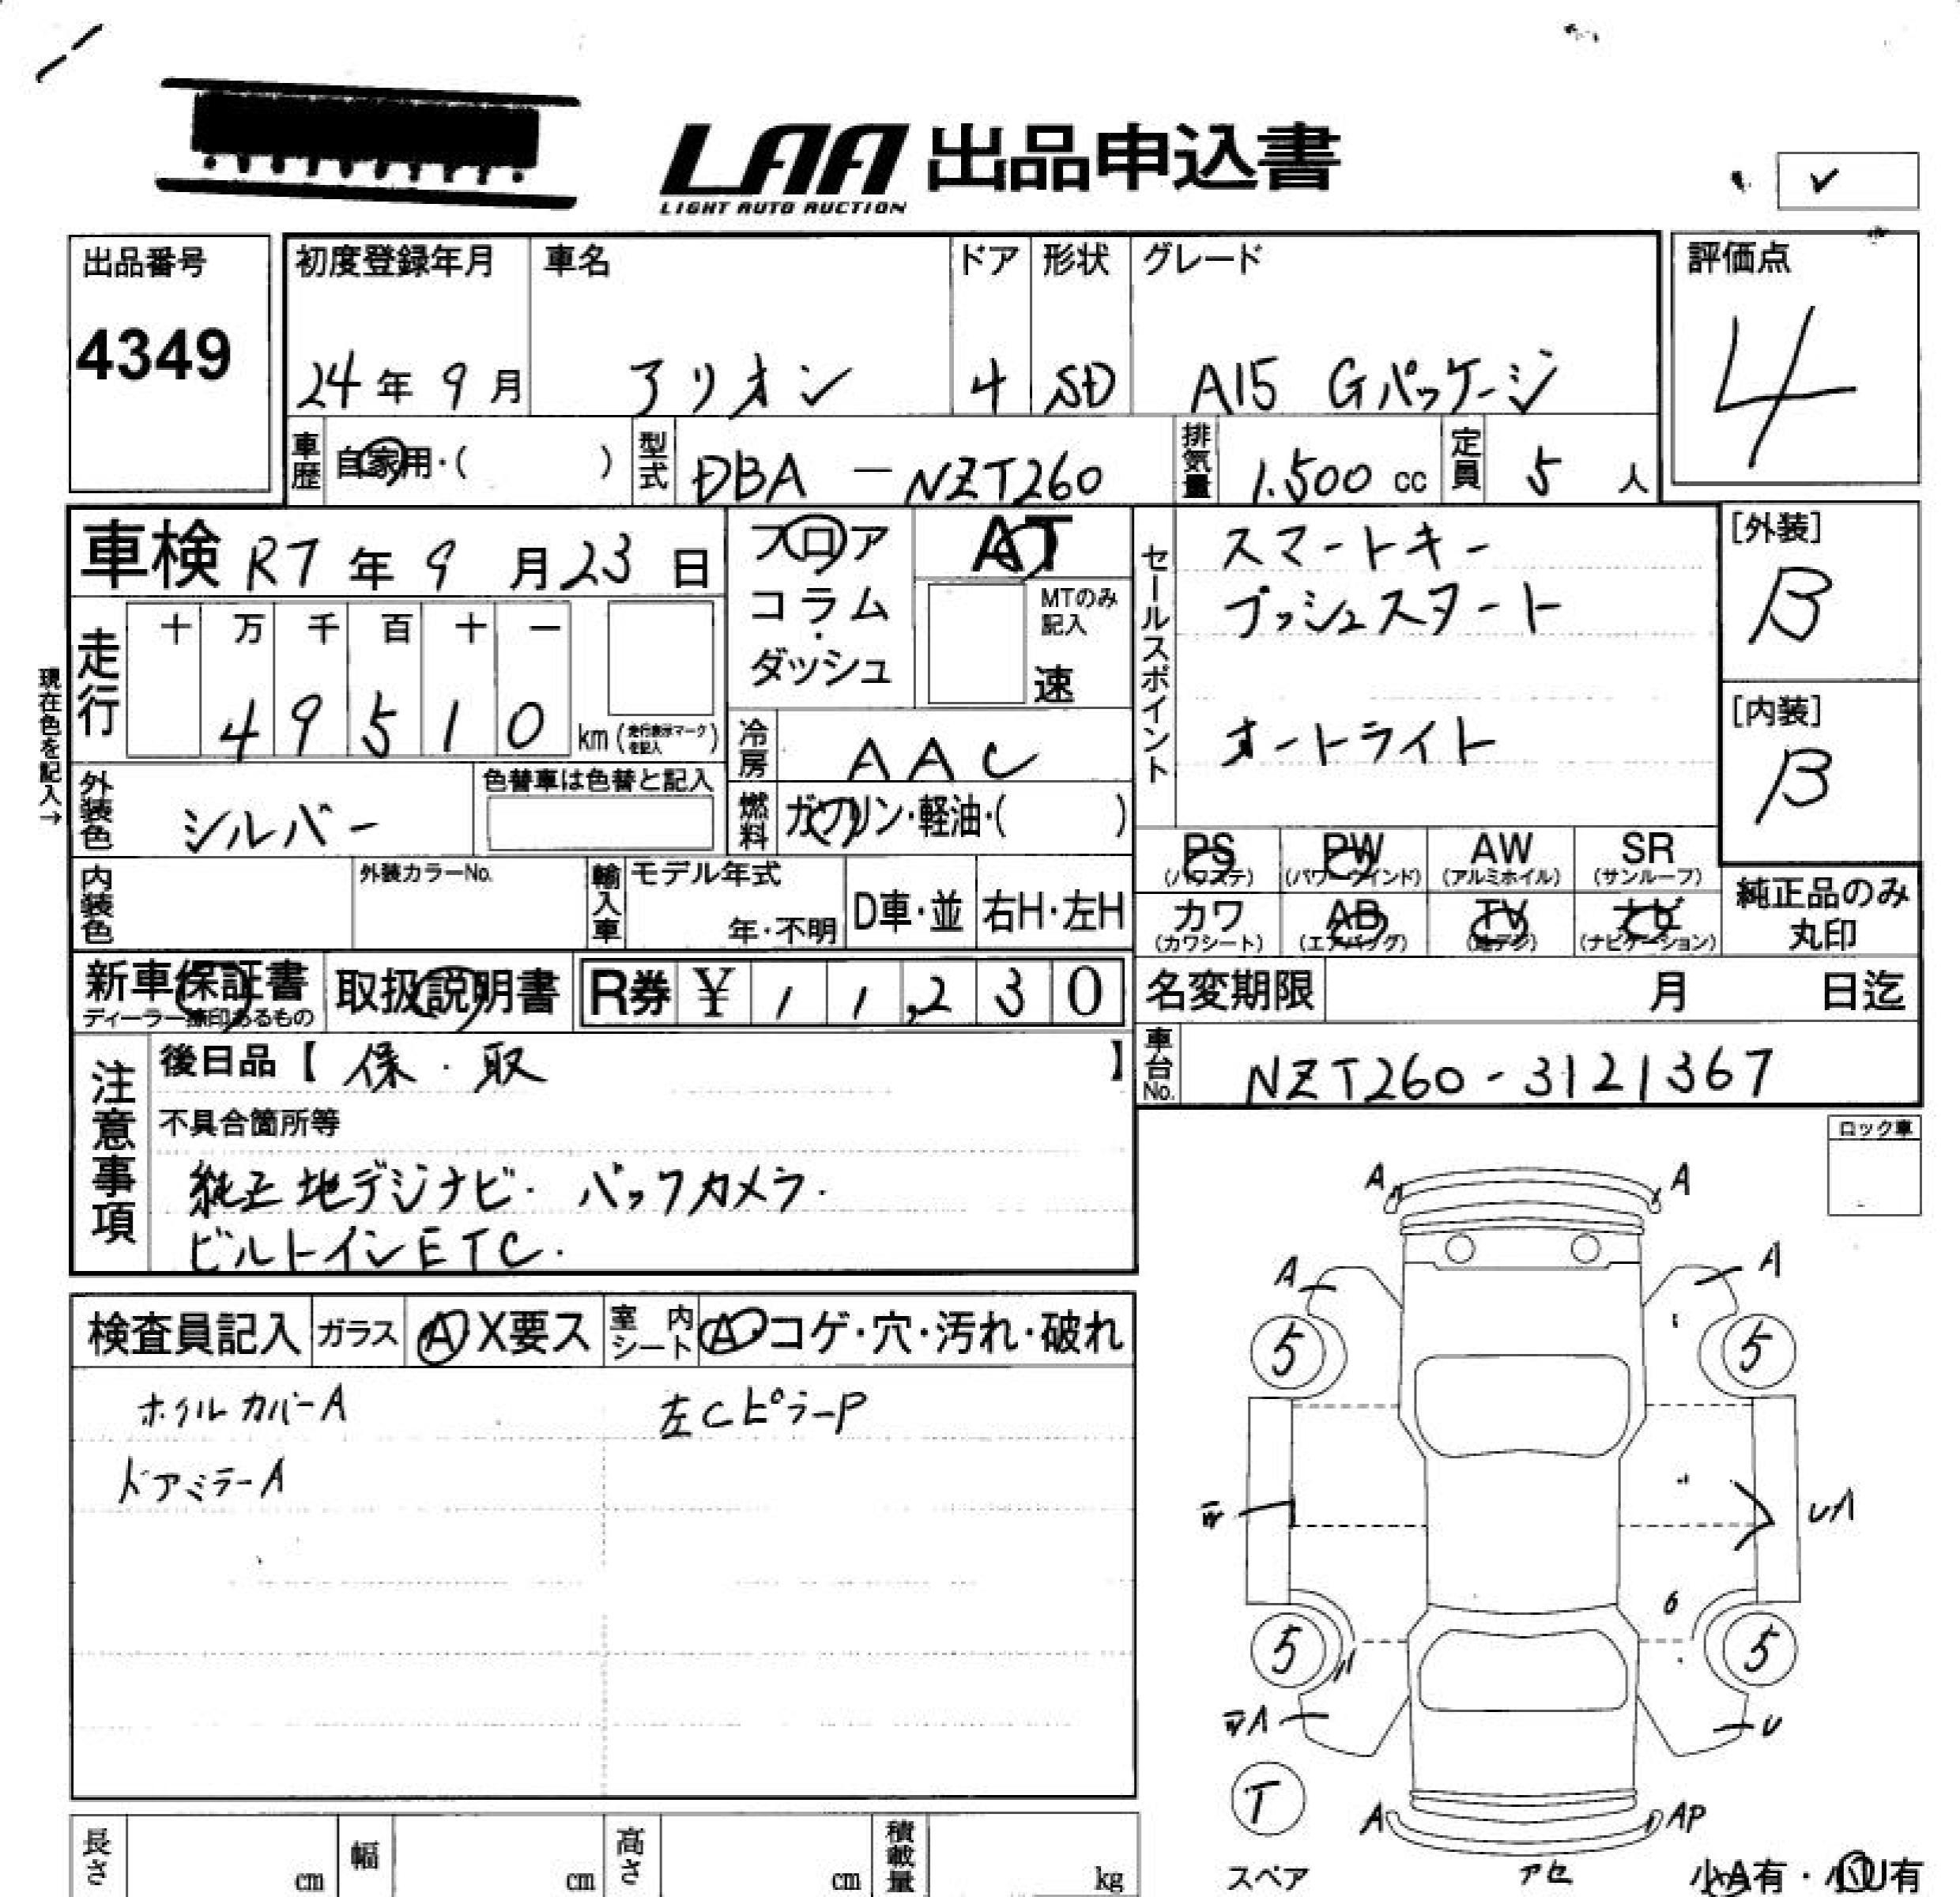 LAA 出品申込書
LIGHT AUTO AUCTION
出品番号 初度登録年月 車名 ドア 形状 グレード 評価点
4349 24年 9月 アリオン 4 SD A15 Gパッケージ 4
車歴 自家用・( ) 型式 DBA - NZT260 排気量 1.500 cc 定員 5 人
車検 R7年 9月23日 フロア AT
コラム・ MTのみ記入
ダッシュ 速
セールスポイント スマートキー
プッシュスタート
オートライト
[外装] B
[内装] B
現在色を記入→
走行 十 万 千 百 十 一
4 9 5 1 0 km (走行表示マークを記入)
冷房 AAC
外装色 シルバー 色替車は色替と記入
燃料 ガソリン・軽油・( )
PS (パワステ) PW (パワーウインド) AW (アルミホイル) SR (サンルーフ)
カワ (カワシート) AB (エアバッグ) TV (地デジ) ナビ (ナビゲーション)
純正品のみ丸印
内装色 外装カラーNo. 輸入車 モデル年式 年・不明 D車・並 右H・左H
新車保証書 ディーラー捺印あるもの 取扱説明書 R券 ¥ 1 1,2 3 0
名変期限 月 日迄
車台No. NZT260-3121367
注意事項 後日品【 保・取 】
不具合箇所等
純正地デジナビ. バックカメラ.
ビルトインETC.
ロック車
検査員記入 ガラス A X要ス 室内シート A・コゲ・穴・汚れ・破れ
ホイルカバーA 左CピラーP
ドアミラーA
A A
A A
5 5
UA
6
5 5
U
T
スペア
A AP
アセ
小A有・小U有
長さ cm 幅 cm 高さ cm 積載量 kg